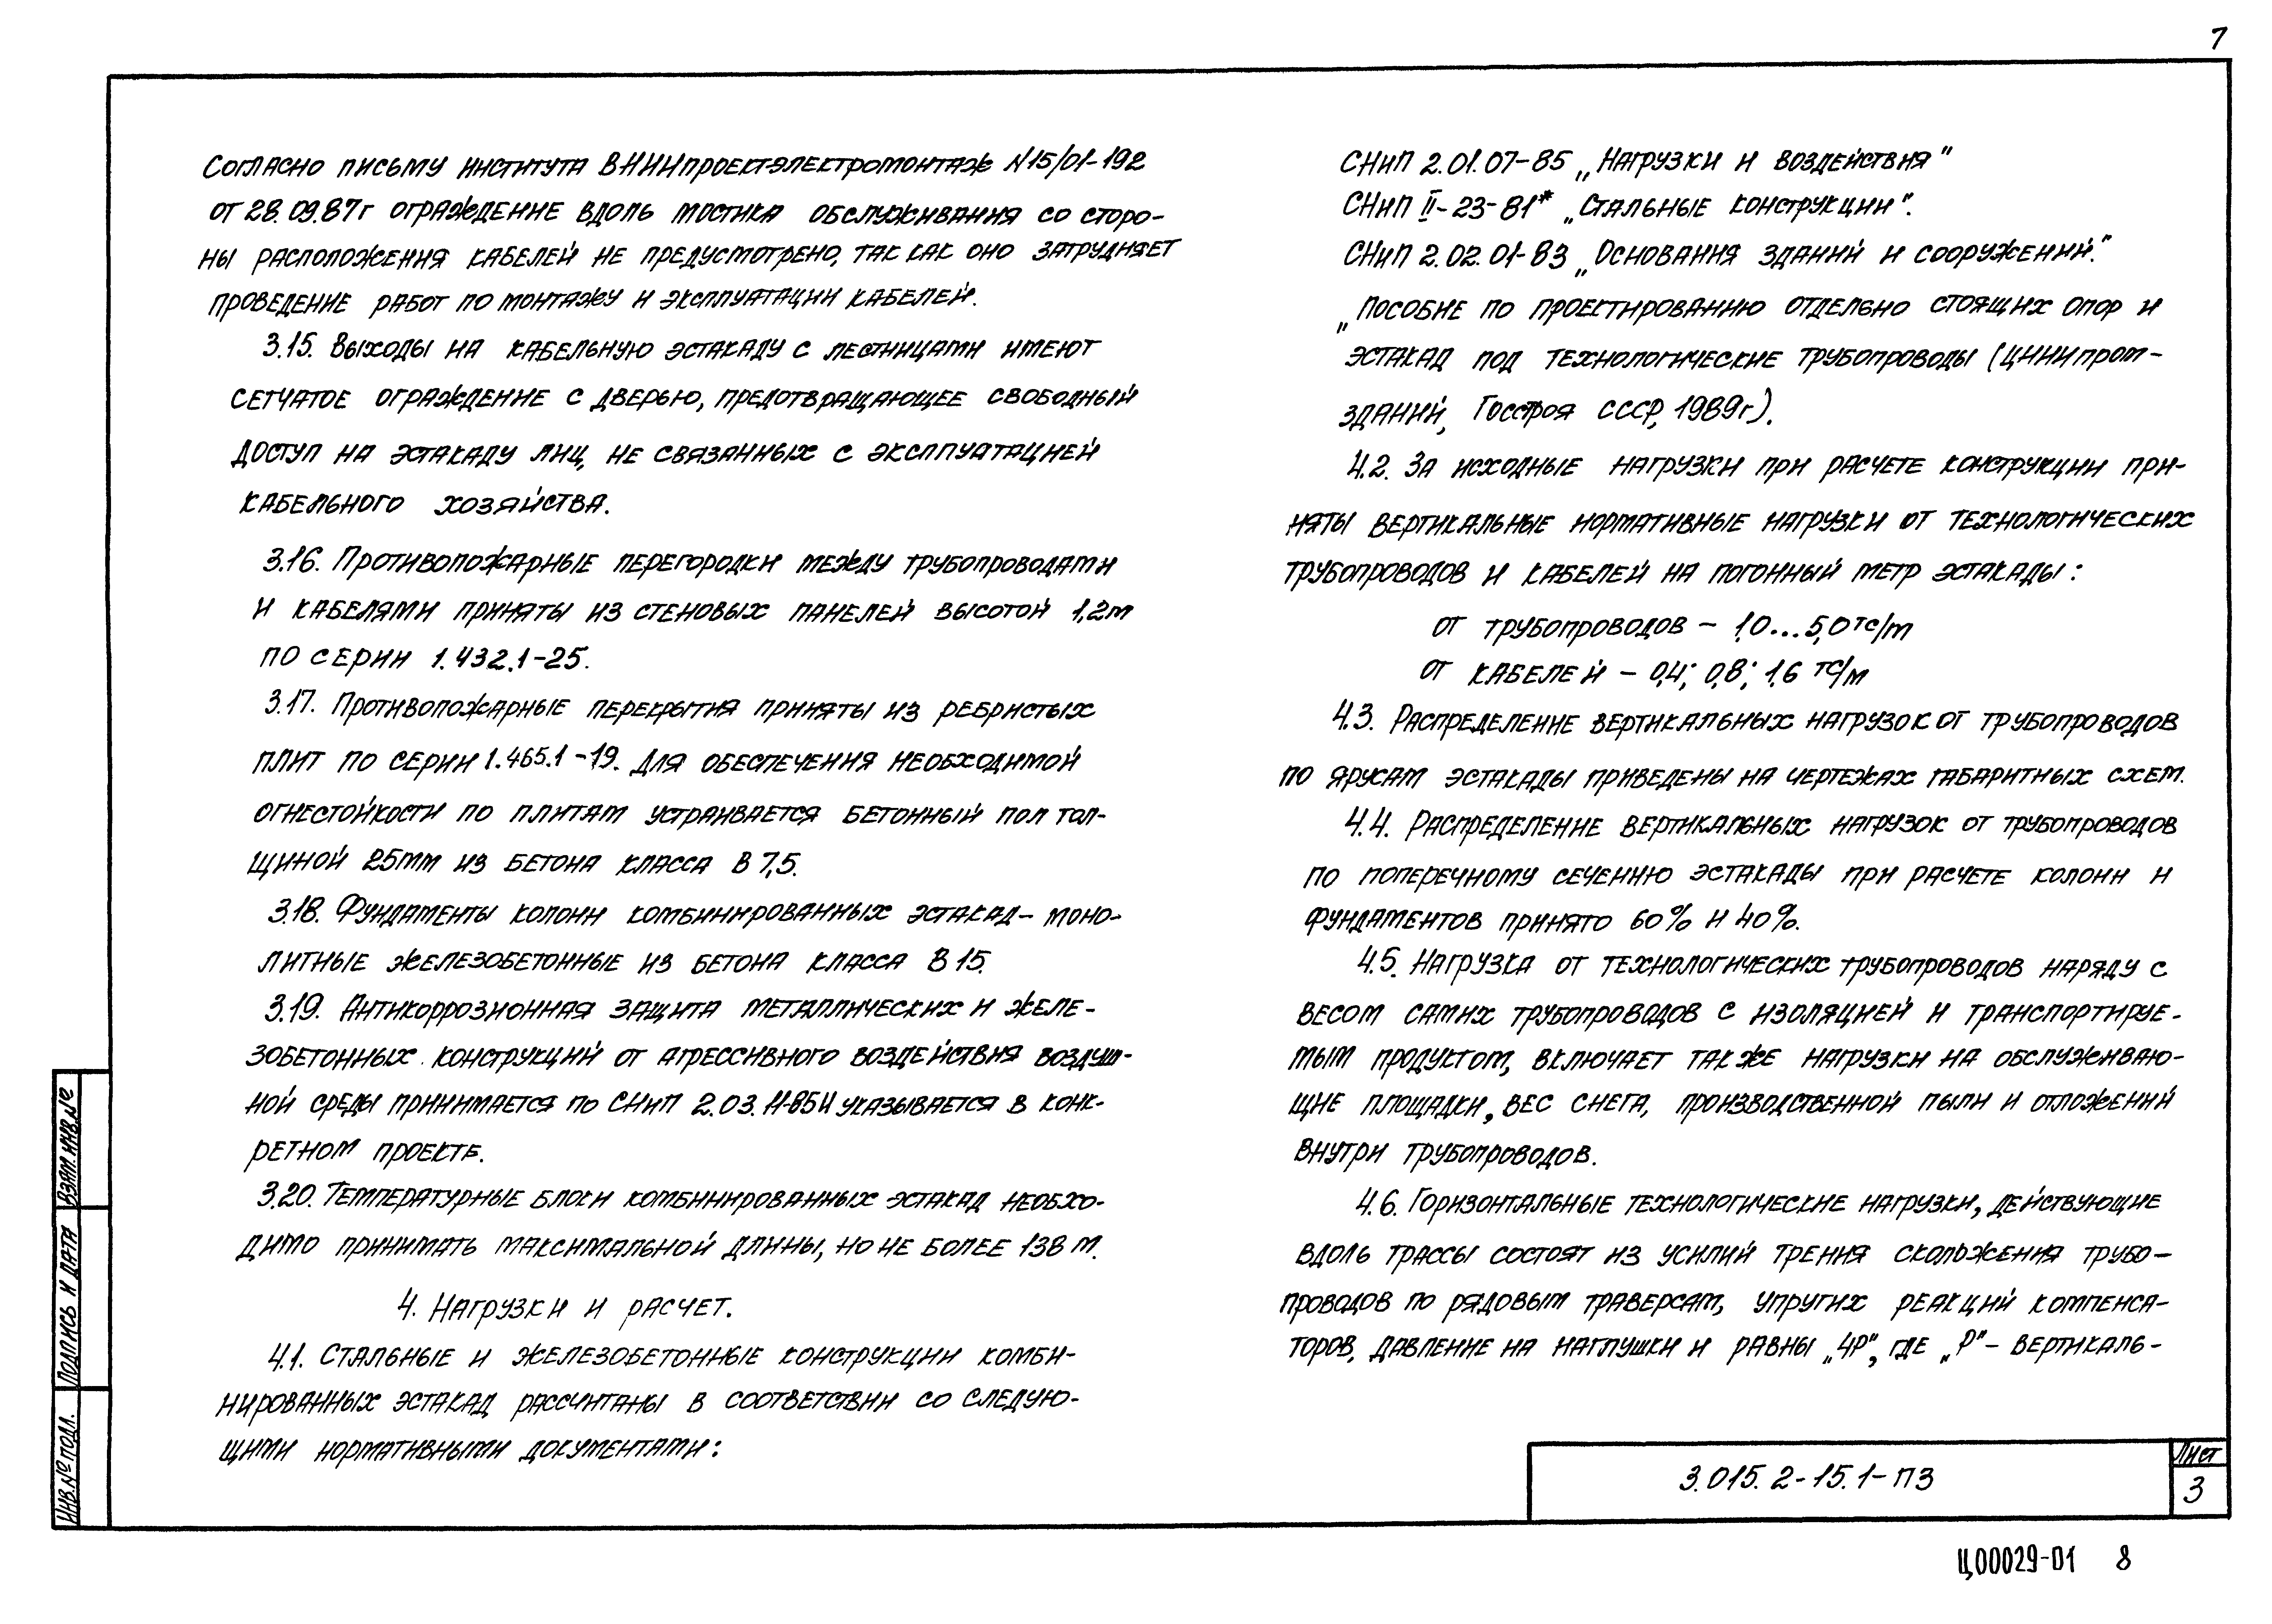 7
Согласно письму института ВНИИпроектэлектромонтаж N15/01-192
от 28.09.87г ограждение вдоль мостика обслуживания со сторо-
ны расположения кабелей не предусмотрено, так как оно затрудняет
проведение работ по монтажу и эксплуатации кабелей.
3.15. Выходы на кабельную эстакаду с лестницами имеют
сетчатое ограждение с дверью, предотвращающее свободный
доступ на эстакаду лиц, не связанных с эксплуатацией
кабельного хозяйства.
3.16. Противопожарные перегородки между трубопроводами
и кабелями приняты из стеновых панелей высотой 1,2м
по серии 1.432.1-25.
3.17. Противопожарные перекрытия приняты из ребристых
плит по серии 1.465.1-19. Для обеспечения необходимой
огнестойкости по плитам устраивается бетонный пол тол-
щиной 25мм из бетона класса В 7,5.
3.18. Фундаменты колонн комбинированных эстакад- моно-
литные железобетонные из бетона класса В 15.
3.19. Антикоррозионная защита металлических и желе-
зобетонных конструкций от агрессивного воздействия воздуш-
ной среды принимается по СНиП 2.03.11-85 и указывается в конк-
ретном проекте.
3.20. Температурные блоки комбинированных эстакад необхо-
димо принимать максимальной длины, но не более 138 м.
4. Нагрузки и расчет.
4.1. Стальные и железобетонные конструкции комби-
нированных эстакад рассчитаны в соответствии со следую-
щими нормативными документами:
СНиП 2.01.07-85 „Нагрузки и воздействия"
СНиП II-23-81* „Стальные конструкции".
СНиП 2.02.01-83 „Основания зданий и сооружений."
„Пособие по проектированию отдельно стоящих опор и
эстакад под технологические трубопроводы (ЦНИИпром-
зданий, Госстроя СССР, 1989г).
4.2. За исходные нагрузки при расчете конструкции при-
няты вертикальные нормативные нагрузки от технологических
трубопроводов и кабелей на погонный метр эстакады:
от трубопроводов - 1,0...5,0 тс/м
от кабелей - 0,4; 0,8; 1,6 тс/м
4.3. Распределение вертикальных нагрузок от трубопроводов
по ярусам эстакады приведены на чертежах габаритных схем.
4.4. Распределение вертикальных нагрузок от трубопроводов
по поперечному сечению эстакады при расчете колонн и
фундаментов принято 60% и 40%.
4.5. Нагрузка от технологических трубопроводов наряду с
весом самих трубопроводов с изоляцией и транспортируе-
мым продуктом, включает также нагрузки на обслуживаю-
щие площадки, вес снега, производственной пыли и отложений
внутри трубопроводов.
4.6. Горизонтальные технологические нагрузки, действующие
вдоль трассы состоят из усилий трения скольжения трубо-
проводов по рядовым траверсам, упругих реакций компенса-
торов, давление на наглушки и равны „4Р", где „Р" - вертикаль-
Взам. инв. №
Подпись и дата
Инв. № подл.
3.015.2-15.1-ПЗ
Лист
3
Ц00029-01 8